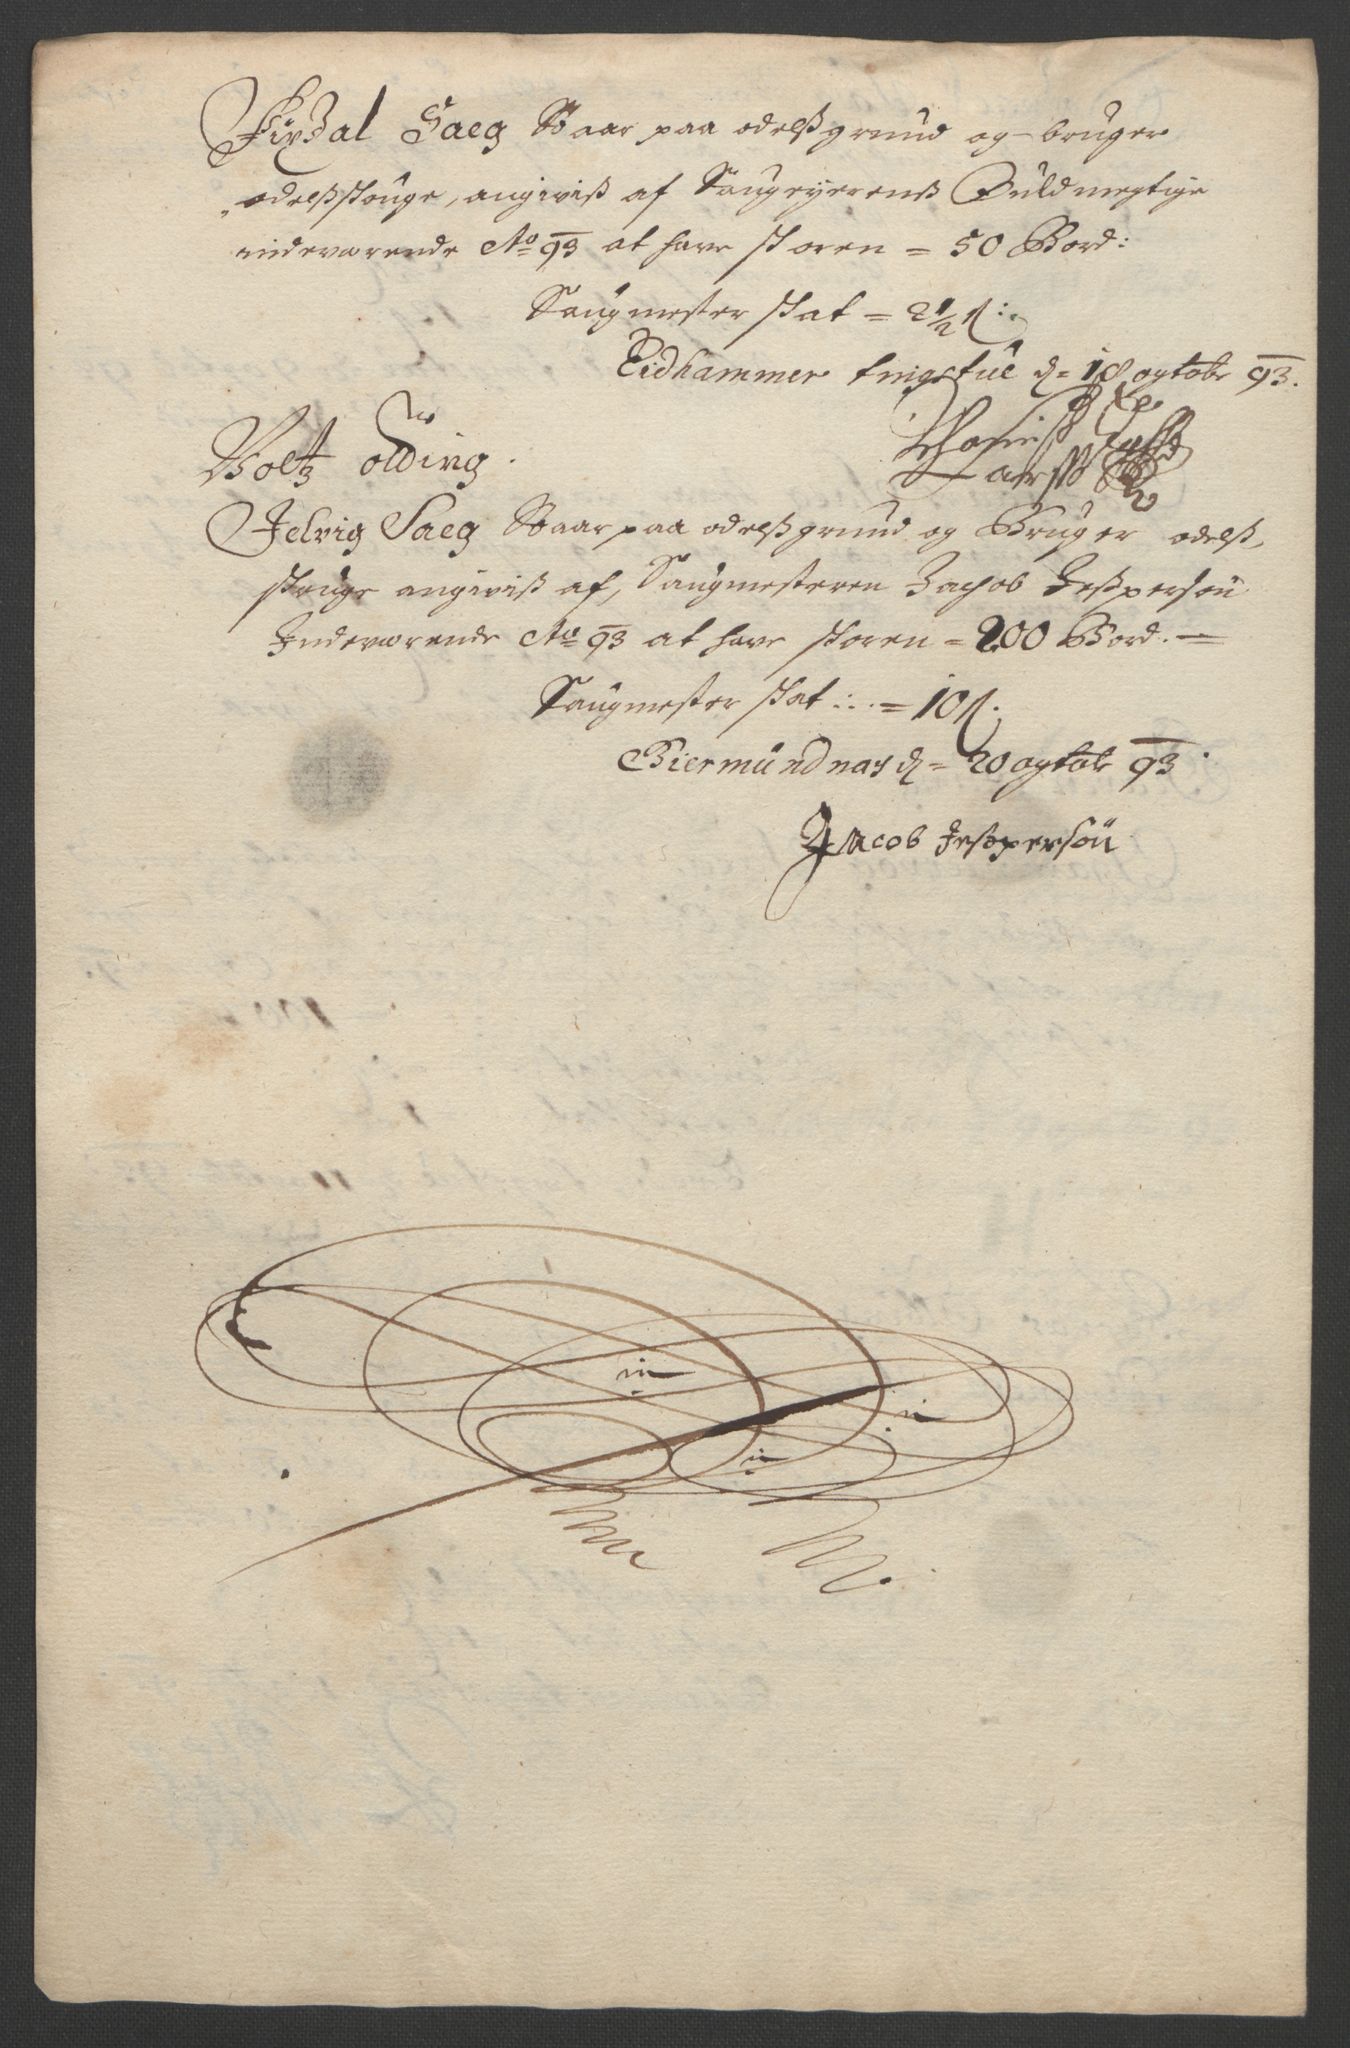 Fiwdal Saeg Staar paa odelsgrund og bruger
odelsskouge, angiviß af Saugeyerens Fuldmegtige
indeværende Ao 93 at have skoren = 50 Bord:
Saugmester skat = 2½ ß:
Eidhammer tingstue d= 18 ogtobr 93.
Larsß
Voltz Otding.
Jelvig Saeg Staar paa odelsgrund og Bruger odelß,
skouge angiviß af, Saugmesteren Jachob Jeßpersøn
Indeværende Ao 93 at have skoren = 200 Bord. —
Saugmester skat :.. = 10 ß.
Biermundnas d = 20 ogtobr 93.
Jacob Jeßpersøn